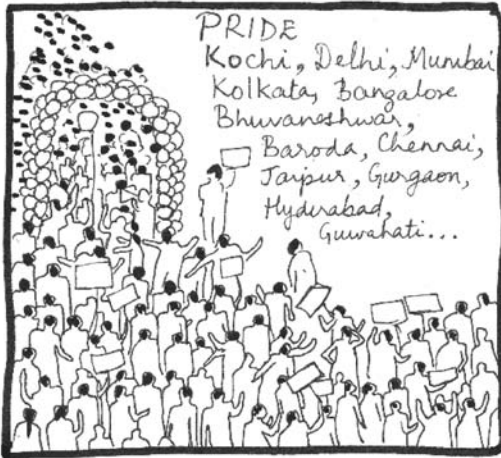 PRIDE
Kochi, Delhi, Mumbai
Kolkata, Bangalore
Bhuvaneshwar,
Baroda, Chennai,
Jaipur, Gurgaon,
Hyderabad,
Guwahati...